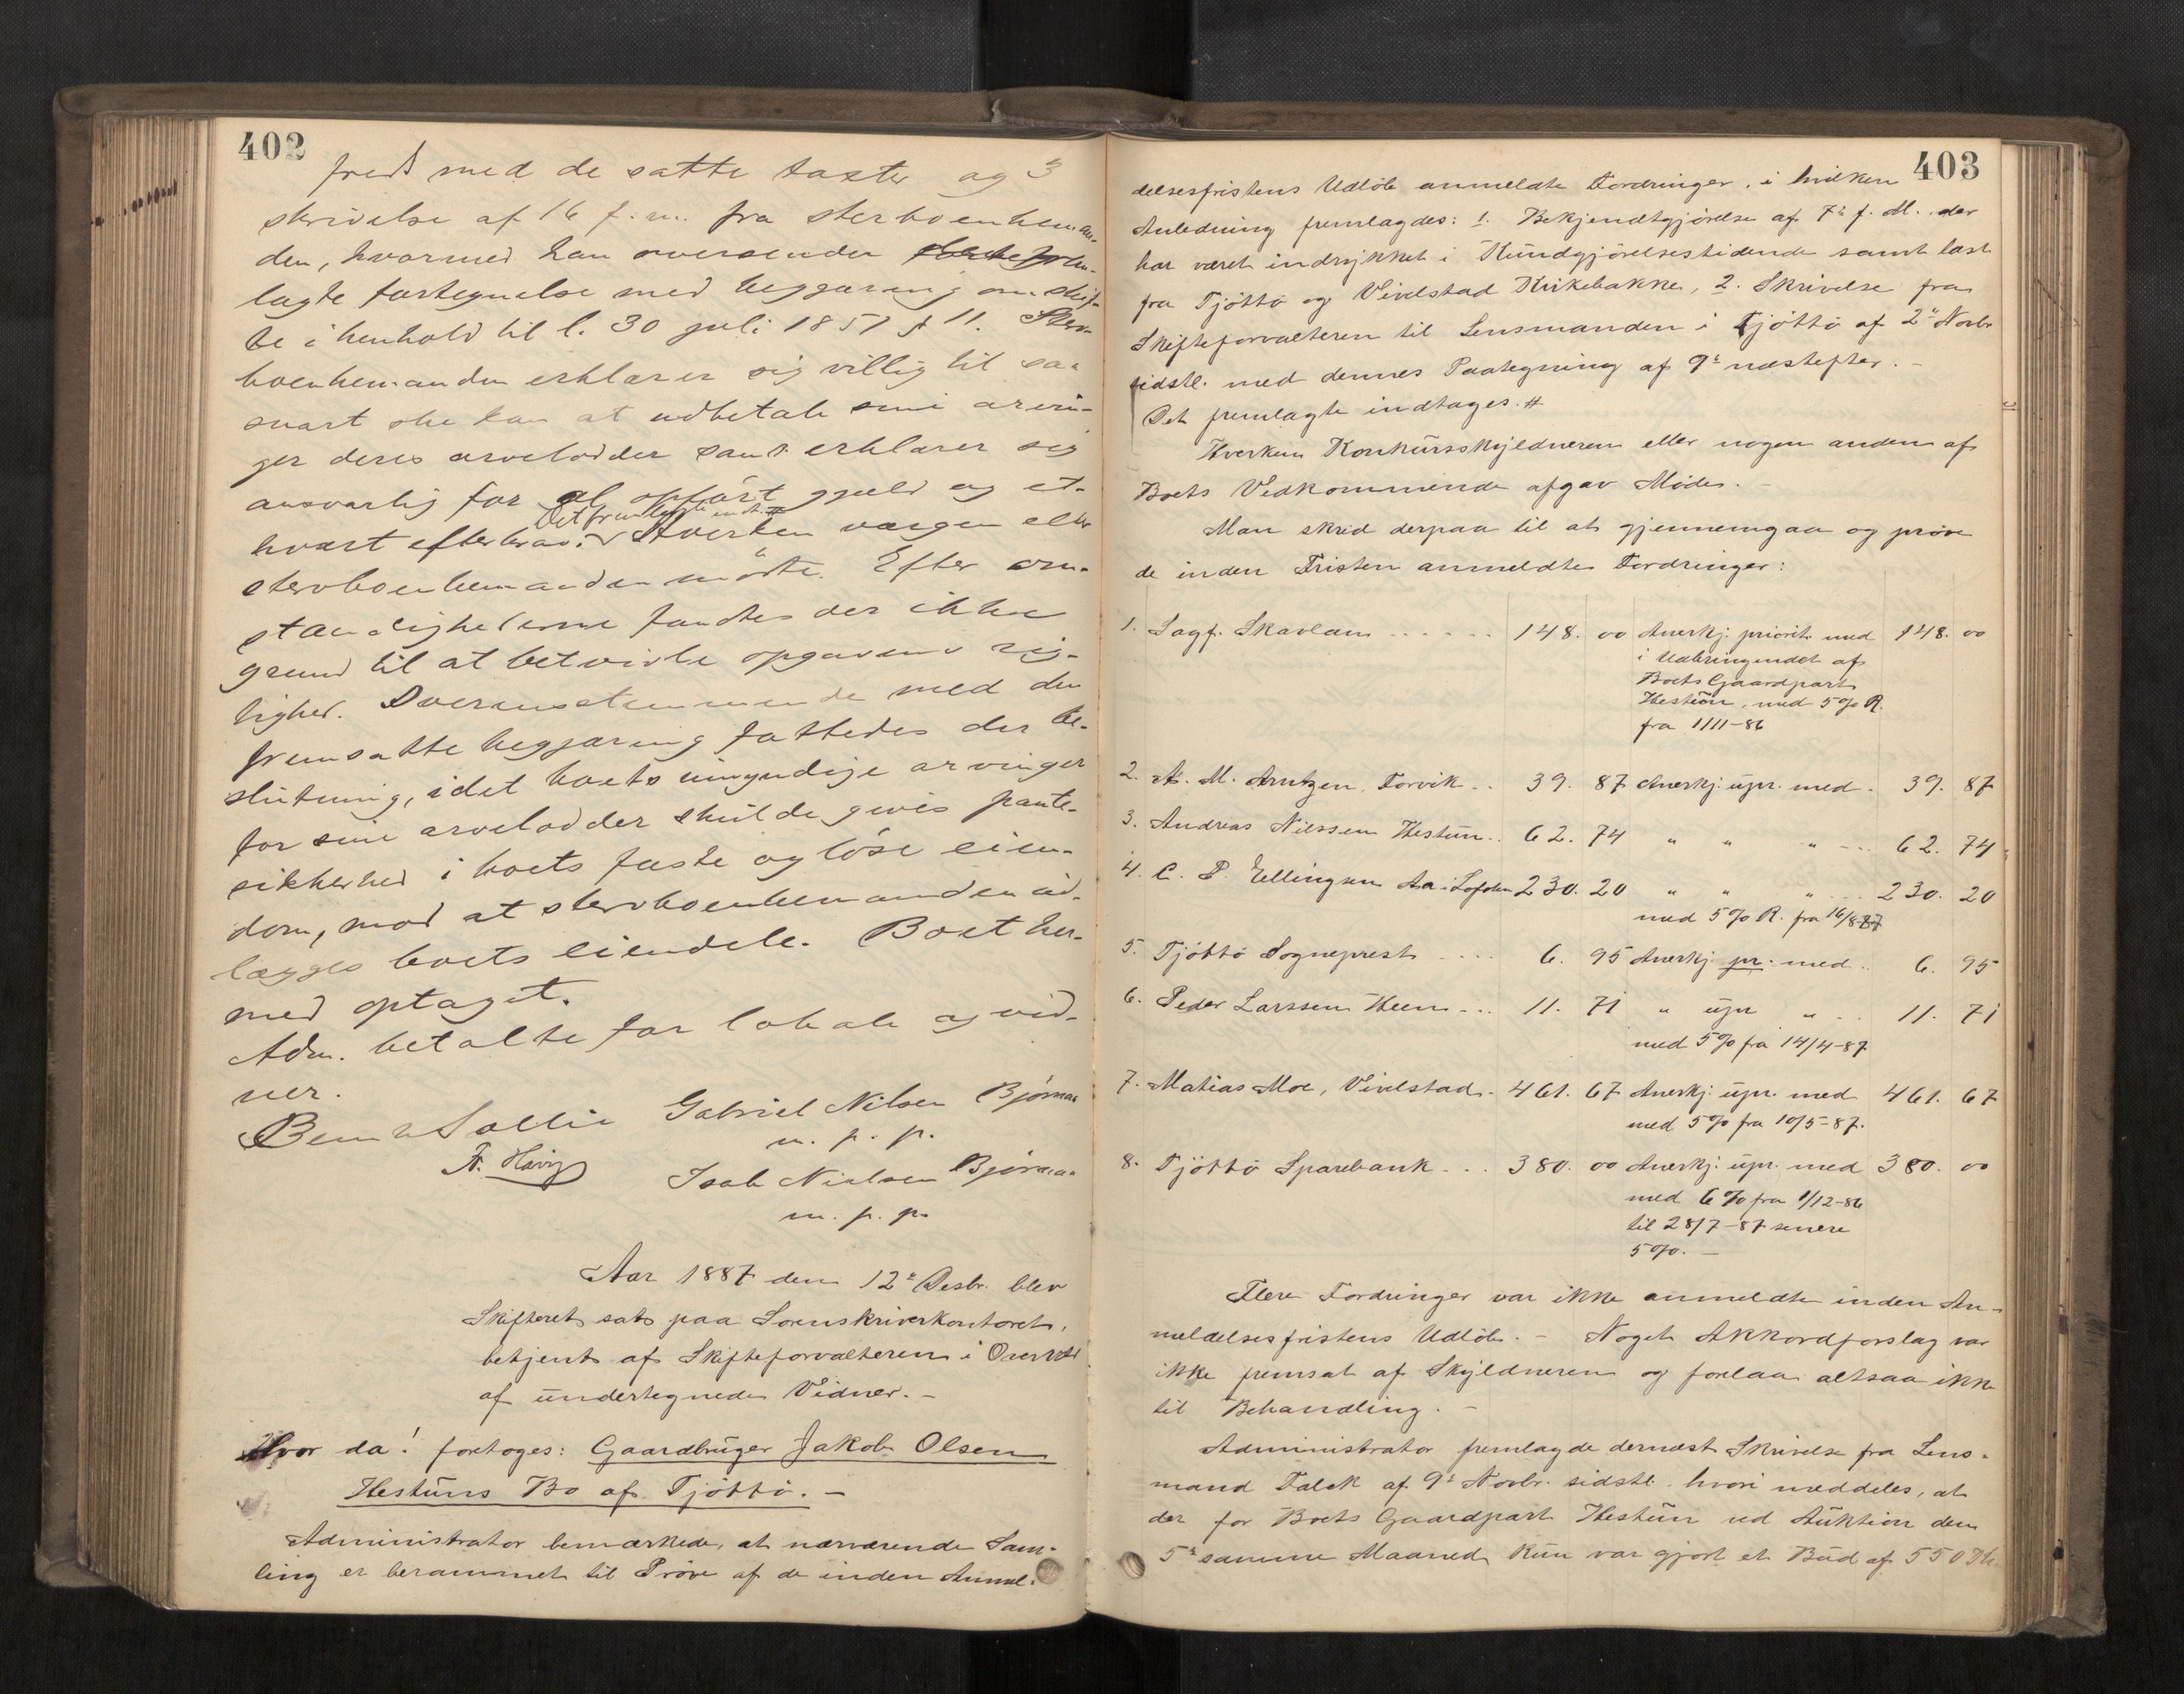 402
freds med de satte taxter og 3
skrivelse af 16 f. m. fra sterboenkeman-
den, hvormed han oversender frem-
lagte fortegnelse med begjæring om skif-
te i henhold til l. 30 juli 1851 § 11. Sterv-
boenkemanden erklærer sig villig til saa
snart ske kan at udbetale sine arvin-
ger deres arvelodder samt erklærer sig
ansvarlig for al opført gjæld og et-
hvært efterkrav. Det fremlagte indt. # Hverken værgen eller
stervboenkemanden mødte. Efter om-
stændighederne fandtes der ikke
grund til at betvivle opgavens rig-
tighed. Overensstemmende med den
fremsatte begjæring fattedes der be-
slutning, idet boets umyndige arvinger
for sine arvelodder skulde gives pante-
sikkerhed i boets faste og løse eien-
dom, mod at stervboenkemanden ud-
lægges boets eiendele. Boet her-
med optaget.
Adm. betalte for lokale og vid-
ner.
Gabriel Nilsen Bjørnaa
m. p. p.
Isak Nielsen Bjørnaa
m. p. p.
Aar 1887 den 12te Desbr. blev
Skifteret sat paa Sorenskriverkontoret,
betjent af Skifteforvalteren i Overvær
af undertegnede Vidner. –
Hvor da! foretoges: Gaardbruger Jakob Olsen
Hestuns Bo af Tjøttø. –
Administrator bemærkede, at nærværende Sam-
ling er berammet til Prøve af de inden Anmel-
403
delsesfristens Udløb anmeldte Fordringer, i hvilken
Anledning fremlagdes: 1. Bekjendtgjørelse af 7de f. M. der
har været indrykket i Kundgjørelsestidende samt læst
fra Tjøttø og Vivelstad Kirkebakke, 2. Skrivelse fra
Skifteforvalteren til Lensmanden i Tjøttø af 2den Novbr
sidstl. med dennes Paategning af 9de næstefter. –
Det fremlagte indtages. #
Hverken Konkursskyldneren eller nogen anden af
Boets Vedkommende afgav Møde. –
Man skred derpaa til at gjennemgaa og prøve
de inden Fristen anmeldte Fordringer:
1. Sagf. Skavlan . . . . . . 148. 00 Anerkj. priorit. med 148. 00
i Udbringendet af
Boets Gaardpart
Hestun, med 5% R.
fra 1/11-86
2. A. M. Arntzen, Forvik . . 39. 87 Anerkj. upr. med . 39. 87
3. Andreas Nilssen Hestun . . 62. 74 " " " - - - 62. 74
4. C. P. Ellingsen Aa i Lofoten 230. 20 " " " . . . 230. 20
med 5% R. fra 16/8-87
5. Tjøttø Sogneprest . . . . 6. 95 Anerkj. pr. med . . 6. 95
6. Peder Larssen Heen . . . 11. 71 " upr " . . 11. 71
med 5% fra 14/4-87
7. Matias Moe, Vivelstad . 461. 67 Anerkj. upr. med 461. 67
med 5% fra 10/5-87.
8. Tjøttø Sparebank . . . 380. 00 Anerkj. upr. med 380. 00
med 6% fra 1/12-86
til 28/7-87 senere
5%. –
Flere Fordringer var ikke anmeldte inden An-
meldelsesfristens Udløb. – Noget Akkordforslag var
ikke fremsat af Skyldneren og forelaa altsaa ikke
til Behandling. –
Administrator fremlagde dernæst Skrivelse fra Lens-
mand Falck af 9de Novbr. sidstl. hvori meddeles, at
der for Boets Gaardpart Hestun ved Auktion den
5te samme Maaned kun var gjort et Bud af 550 Kr